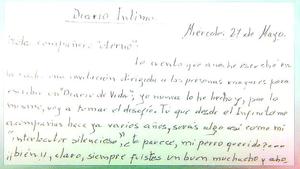 Diario Intimo
Miercoles 21 de Mayo.
compañero "eterno":
Te cuento que anoche escuché en
la radio una invitación dirigida a las personas mayores para
escribir un "Diario de Vida", yo nunca lo he hecho y, por lo
mismo, voy a tomar el desafío. Tú que desde el Infinito me
acompañas hace ya varios años, serás algo así como mi
"interlocutor silencioso", ¿te parece, mi perro querido?
¡¡bien!!, claro, siempre fuistes un buen muchacho y